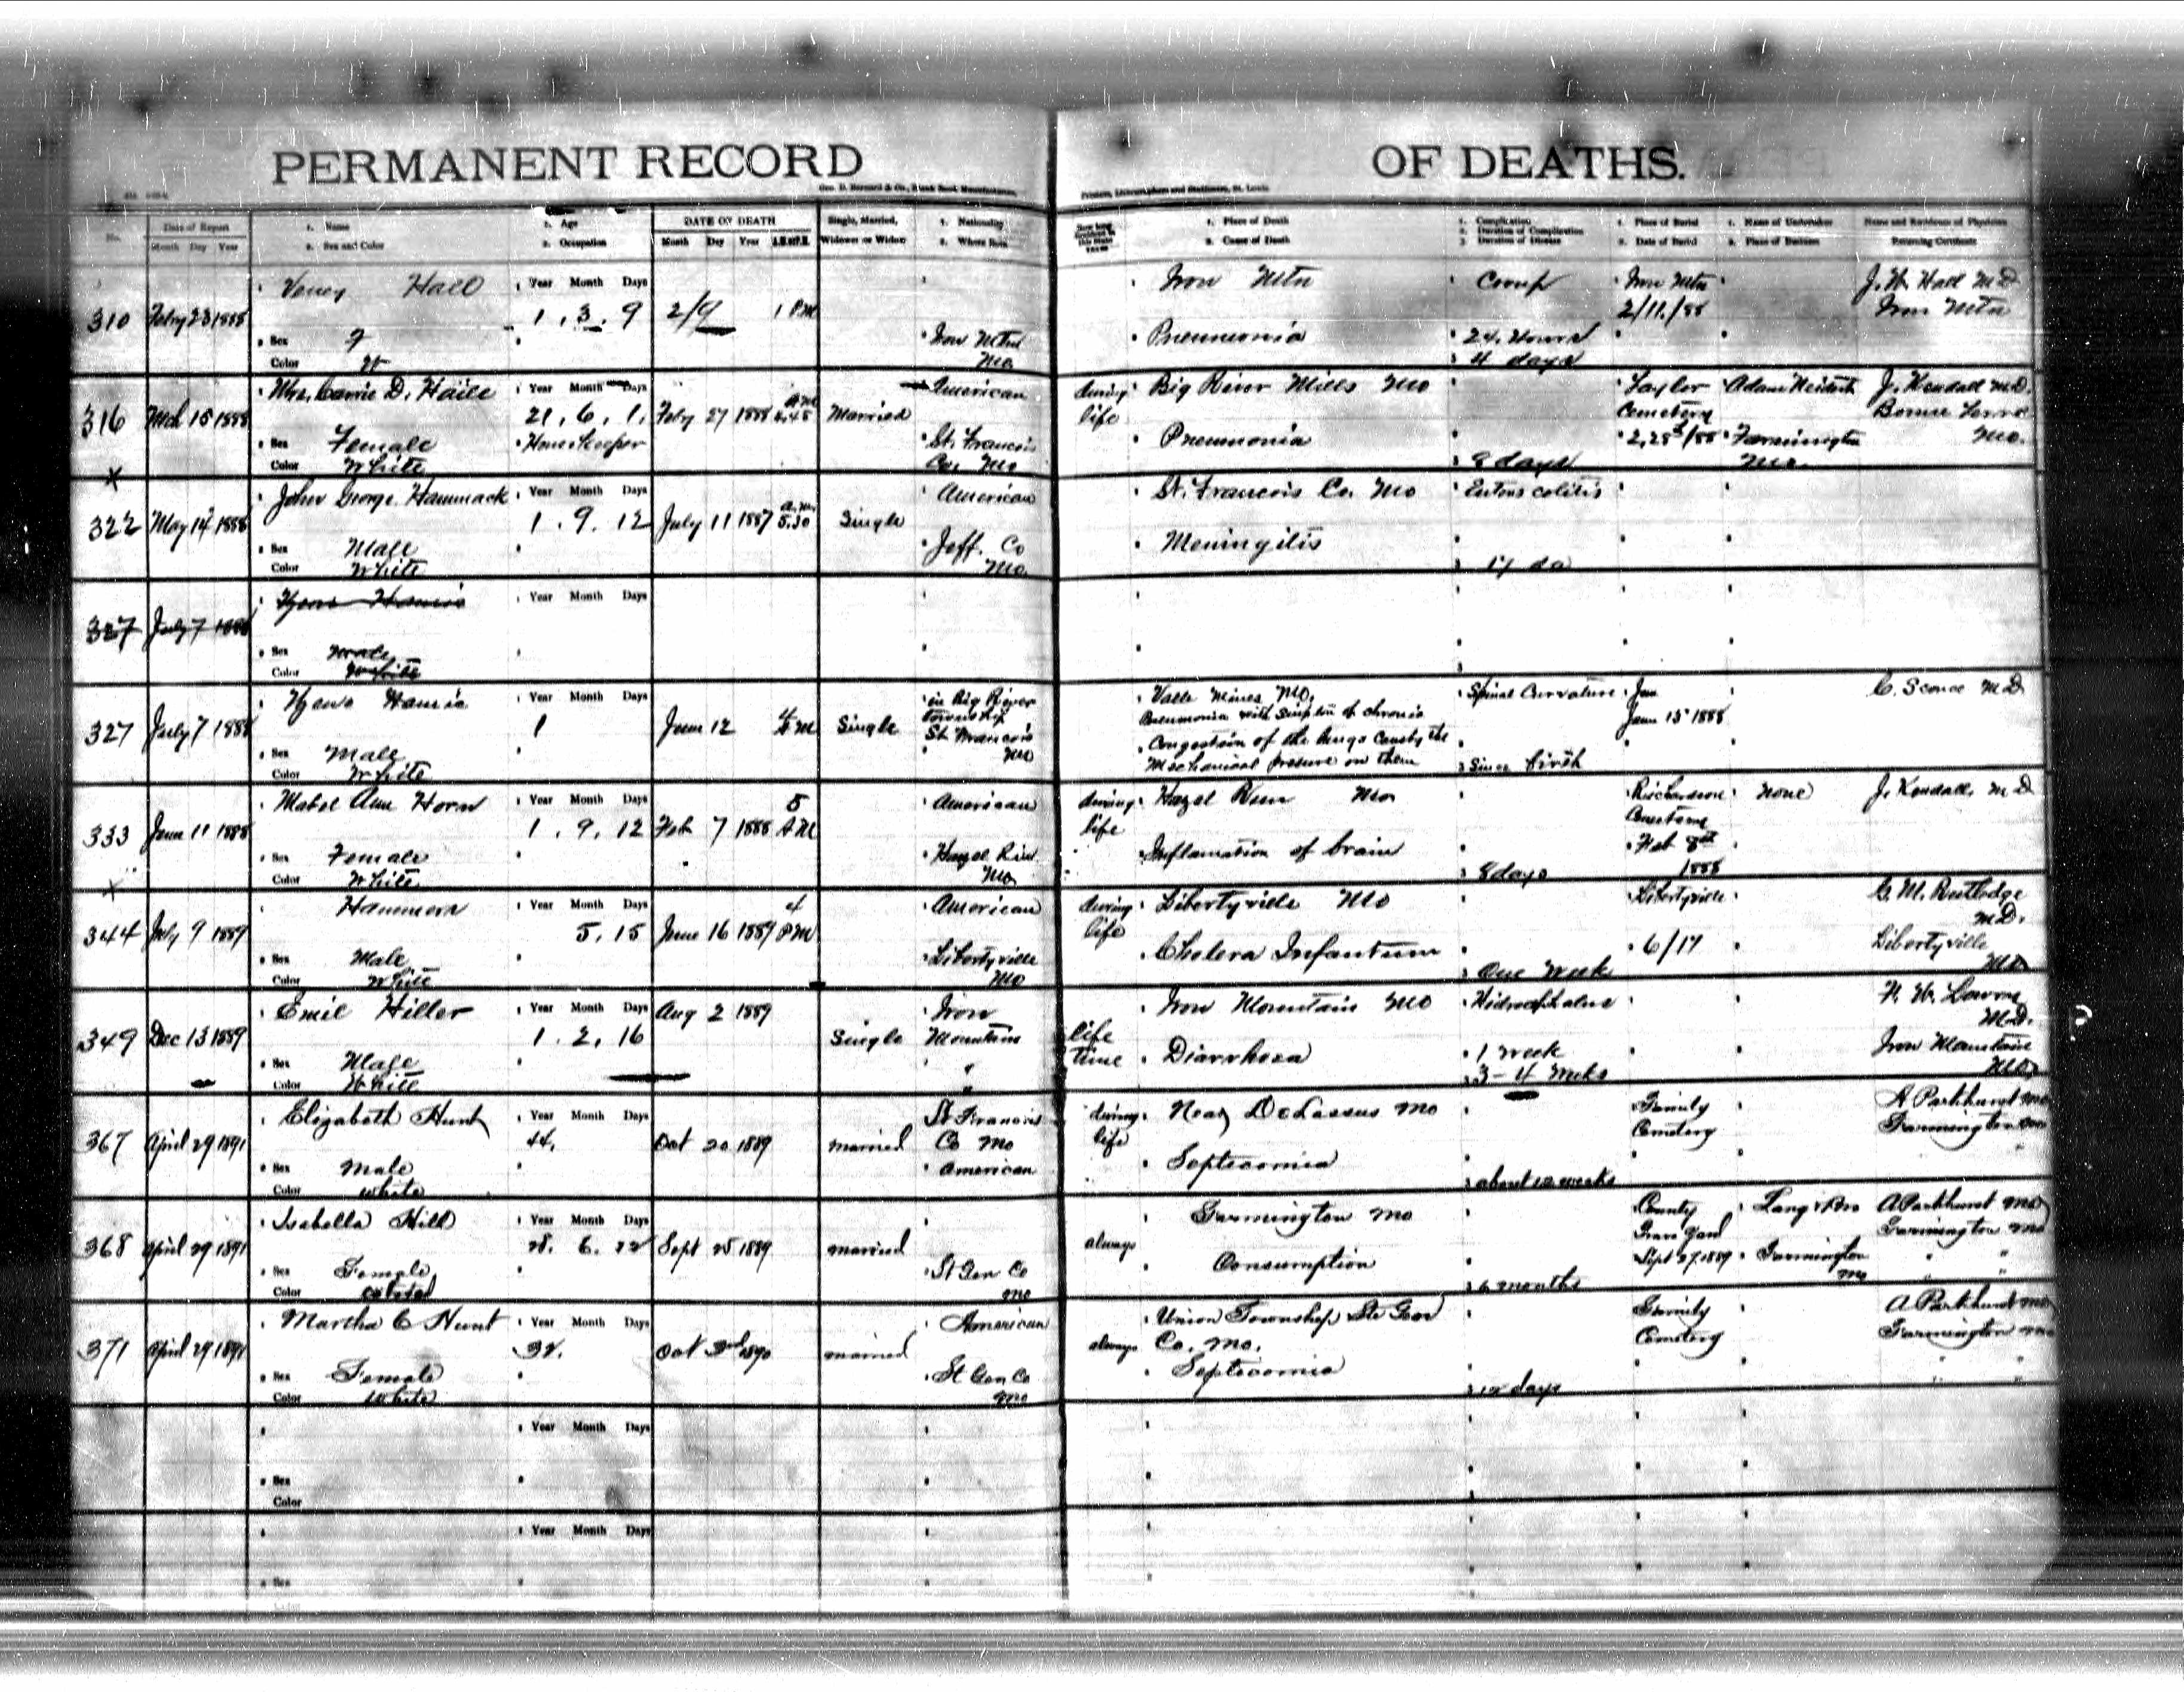 PERMANENT RECORD OF DEATHS.
Geo. D. Barnard & Co., Blank Book Manufacturers, Printers, Lithographers and Stationers, St. Louis
No.
Date of Report
Month Day Year
1. Name
2. Sex and Color
1. Age
2. Occupation
DATE OF DEATH
Month Day Year
Single, Married,
Widower or Widow
1. Nationality
2. Where Born
1. Place of Death
2. Cause of Death
1. Complication
2. Duration of Complication
3. Duration of Disease
1. Place of Burial
2. Date of Burial
1. Name of Undertaker
2. Place of Business
Name and Residence of Physician
Returning Certificate
310 Febry 23 1888
Hall
Year Month Days
1. 3. 9
2/9 1 PM
Sex F
Color W
Iron Mtn
Mo
Iron Mtn
Pneumonia
Croup
24. Hours
4 days
Iron Mtn
2/11./88
J. W. Hall M.D.
Iron Mtn
316 Mch 15 1888
Mrs. Carrie D. Haile
Year Month Days
21. 6. 1.
House Keeper
Sex Female
Color White
Feby 27 1888
Married
American
St. Francois
Co. Mo
during
life
Big River Mills Mo
Pneumonia
8 days
Taylor
Cemetery
Adam
Farmington
Mo.
J. Kendall M.D.
Bonne Terre
Mo.
X
322 May 14 1888
John George Hammack
Year Month Days
1. 9. 12
Sex Male
Color White
July 11 1887 A.M. 5.30
Single
American
Jeff. Co
Mo.
St. Francois Co. Mo
Meningitis
Entero colitis
17 da
327 July 7 1888
Year Month Days
Sex Male
Color White
327 July 7 1888
Year Month Days
1
Sex Male
Color White
June 12 4 AM
Single
in Big River
Township
St Francois
Mo
Valle Mines Mo.
Congestion of the lungs
Mechanical presure on them
Spinal Curvature
Since birth
Jun
June 15 1888
M.D.
333 June 11 1888
Mabel Ann Horn
Year Month Days
1. 9. 12
Sex Female
Color White
Feb 7 1888 5 AM
American
Hazel Run
Mo
during
life
Hazel Run Mo
Inflamation of brain
8 days
Richardson
Feb 8th
1888
None
J. Kendall M D
X
344 July 9 1889
Year Month Days
5. 15
Sex Male
Color White
June 16 1889 4 PM
American
Libertyville
Mo
during
life
Libertyville Mo
Cholera Infantum
One Week
Libertyville
6/17
G. M. Rutledge
M.D.
Libertyville
Mo
349 Dec 13 1889
Emil Hiller
Year Month Days
1. 2. 16
Sex Male
Color White
Aug 2 1889
Single
Iron
Mountain
"
life
time
Iron Mountain Mo
Diarrhoea
1 Week
3 - 4 Weeks
M.D.
Iron Mountain
Mo
367 April 29 1891
Elizabeth Hunt
Year Month Days
44.
Sex Male
Color White
Oct 20 1889
married
St Francois
Co Mo
American
during
life
Near DeLassus Mo
Septicemia
Family
Cemetery
A Parkhurst MD
Farmington Mo
368 April 29 1891
Isabella Hill
Year Month Days
Sex Female
Color Colored
Sept 25 1889
married
St Gen Co
Mo
always
Farmington Mo
Consumption
6 months
County
Grave Yard
Sept 27 1889
Lang & Bro
Farmington
Mo
A Parkhurst MD
Farmington Mo
" "
371 April 29 1891
Martha C Hunt
Year Month Days
Sex Female
Color White
married
American
St Gen Co
Mo
always
Union Township Ste Gen
Co. Mo.
Septicemia
Family
Cemetery
A Parkhurst MD
Farmington Mo
" "
Year Month Days
Sex
Color
Year Month Days
Sex